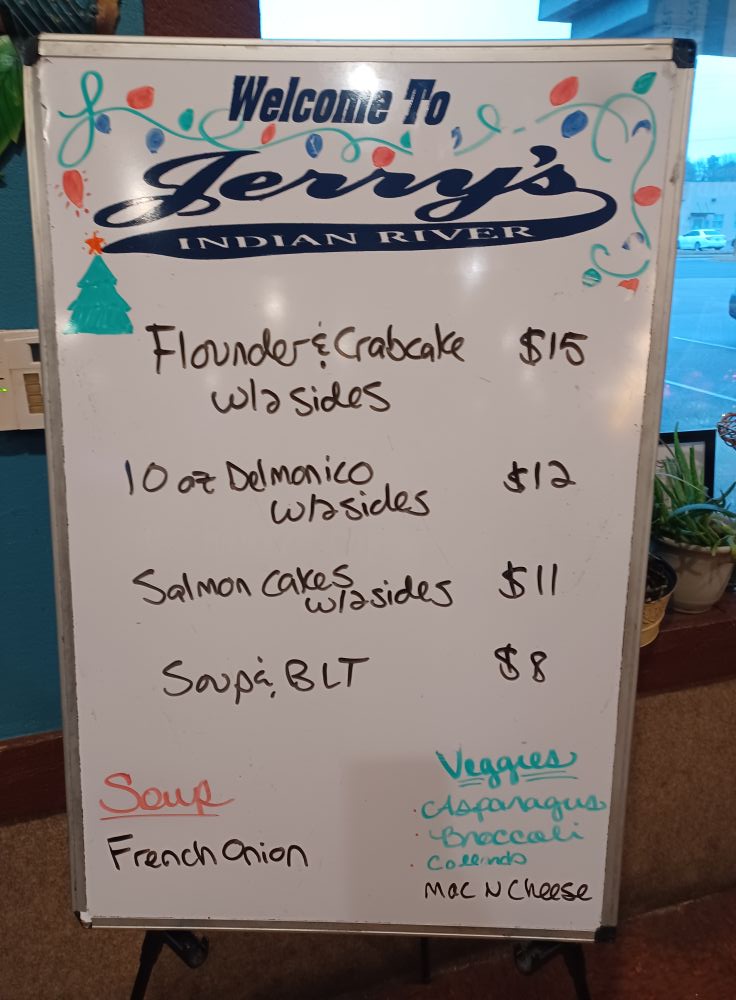 Welcome To
Jerry's
INDIAN RIVER
Flounder & Crabcake $15
w/2 sides
10 oz Delmonico $12
w/2 sides
Salmon cakes $11
w/2 sides
Soup & BLT $8
Soup
French Onion
Veggies
· Asparagus
· Broccoli
· Collards
Mac N Cheese